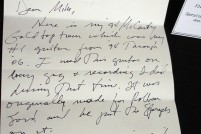 Dear Mike,
Here is my '9 McCarty
Gold top trem which was my
#1 guitar from '9 Through
06. I used this guitar on
every gig & recording I did
during that time. It was
originally made for
good and he put the
on it